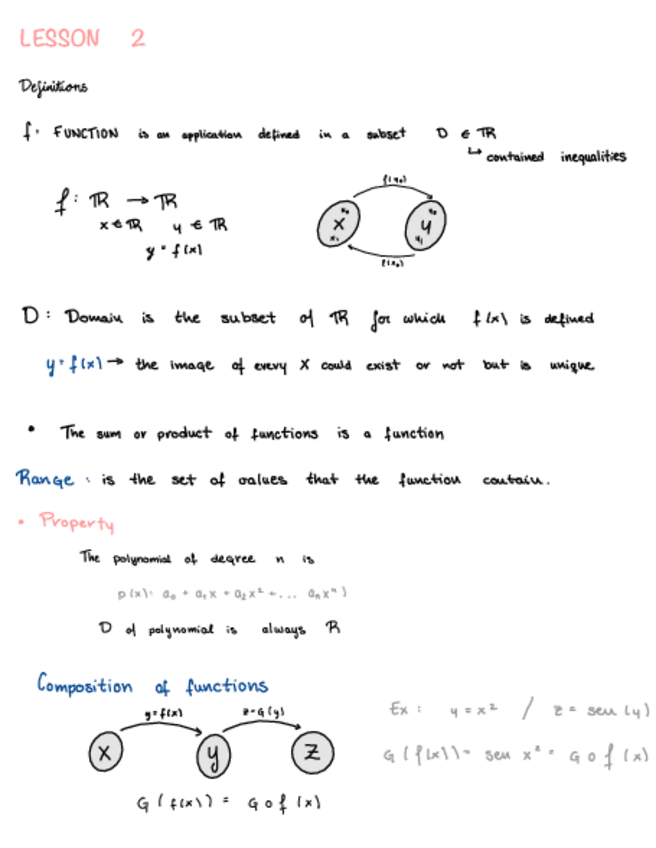 LESSON 2
Definitions
f: FUNCTION is an application defined in a subset D ∈ ℝ
↳ contained inequalities
f: ℝ → ℝ
x ∈ ℝ y ∈ ℝ
y = f(x)
x
y
D: Domain is the subset of ℝ for which f(x) is defined
y = f(x) → the image of every X could exist or not but is unique
• The sum or product of functions is a function
Range: is the set of values that the function contain.
• Property
The polynomial of degree n is
p(x): a₀ + a₁x + a₂x² + ... aₙxⁿ)
D of polynomial is always R
Composition of functions
y=f(x) z=G(y)
x y z
G(f(x)) = G o f(x)
Ex: y = x² / z = sen(y)
G(f(x)) = sen x² = G o f(x)